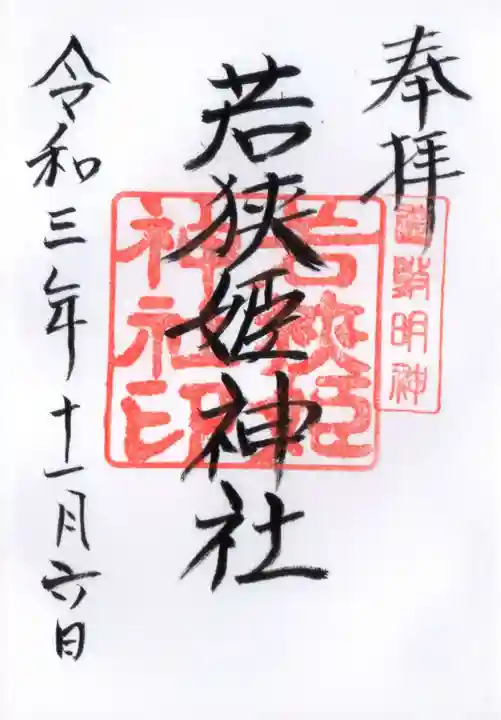 奉拝
遠敷明神
若狭姫神社
若狭姫
神社印
令和三年十一月六日